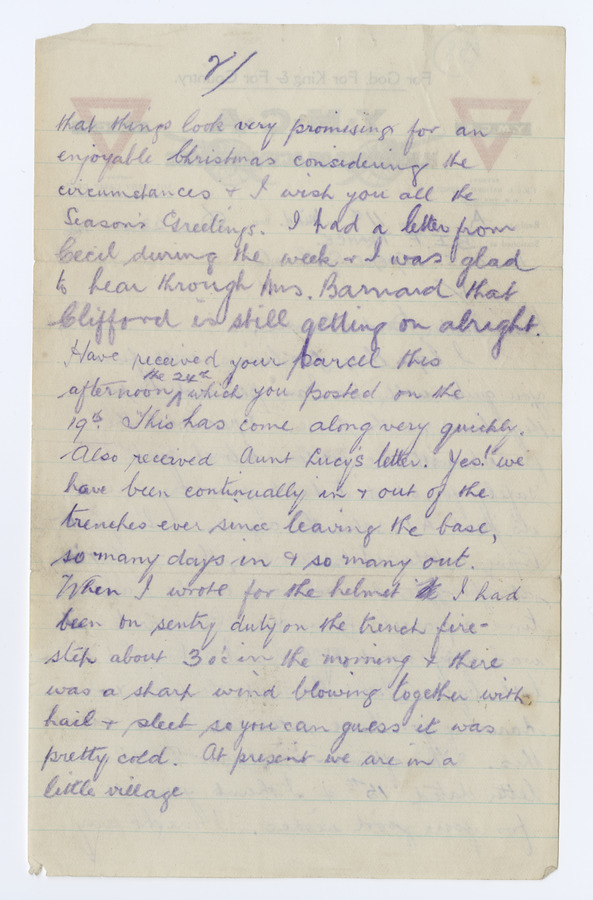 2/
For God, For King & For Country.
that things look very promising for an
enjoyable Christmas considering the
circumstances & I wish you all the
Season's Greetings. I had a letter from
Cecil during the week & I was glad
to hear through Mrs. Barnard that
Clifford is still getting on alright.
Have received your parcel this
afternoon the 24th which you posted on the
19th. This has come along very quickly.
Also received Aunt Lucy's letter. Yes! we
have been continually in & out of the
trenches ever since leaving the base,
so many days in & so many out.
When I wrote for the helmet I had
been on sentry duty on the trench fire-
step about 3 o'c in the morning & there
was a sharp wind blowing together with
hail & sleet so you can guess it was
pretty cold. At present we are in a
little village